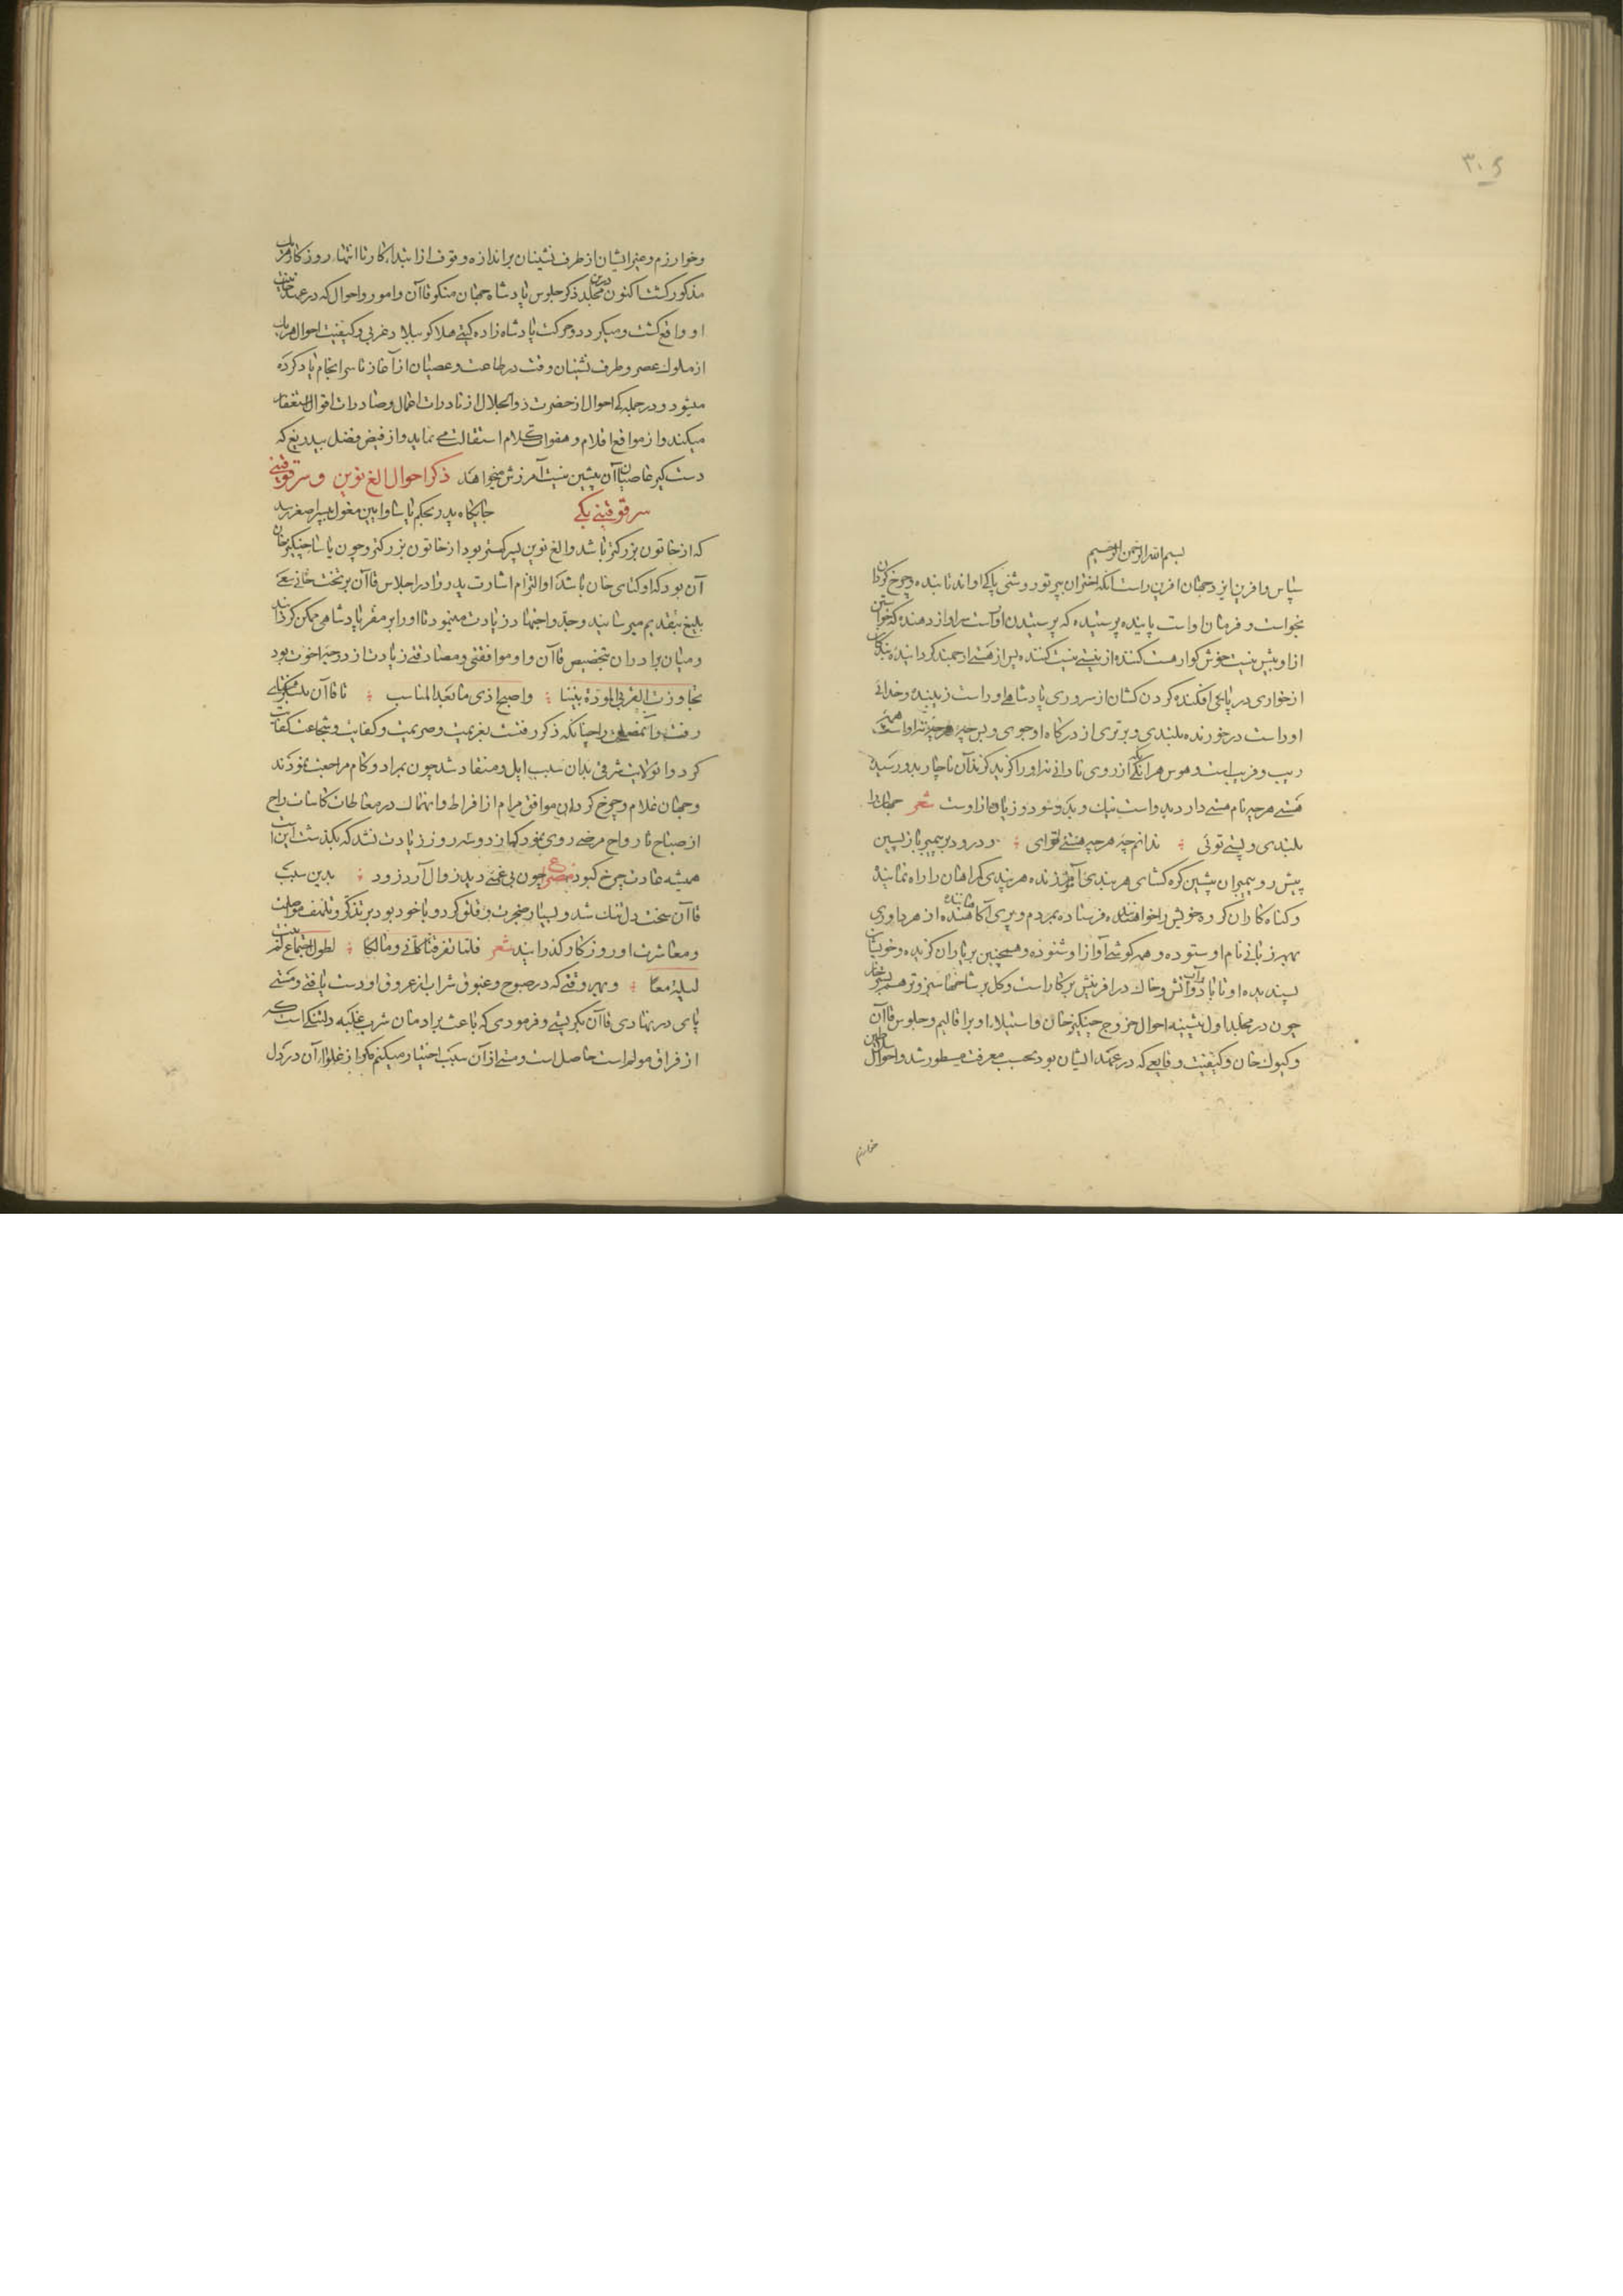 ۳۰۶
بسم الله الرحمن الرحیم
سپاس و افرین ایزد جهان افرین راست آنکه اختران بپرتو روشنی پاکی او اند تابنده و چرخ گردان
بخواست و فرمان اوست پاینده پرستیده که پرستیدن اوست سزاوار دهنده که خواستن
از او بیش نیست خوش گوار هست کننده از نیستی نیست کننده پس از هستی ارجمند گرداننده بندگان
از خواری در پای افکنده گردن کشان از سروری پادشاهی او راست زیبنده و خدائی
او راست درخورنده بلندی و برتری از درگاه او جوی و بس هر چه جز
ریب و فریب است و هوس هر آنکه از روی نادانی نه او را گزید گزند آن ناچار بدو رسید
هستی هر چه نام هستی دارد بدواست نیک و بد و سود و زیان از اوست شعر جهان را
بلندی و پستی توئی ندانم چه هر چه هستی توای و درود بر پیمبر بازپسین
پیش رو پیمبران پیشین گره گشای هر بندی آموزنده هر پندی گمراهان را راه نماینده
و گناه کاران گروه خویش را خواهنده فرستاده بمردم و پری آگاهنده از هر داوری
بهر زبانی نام او ستوده و هر گوشی آواز او شنوده و همچنین بر یاران گزیده و خویشان
پسندیده او تا باد و آب و آتش و خاک در افرینش بر کار است و گل بر شاخها سبز و تر
چون در مجلد اول پیشینه احوال خروج چنگیز خان و استیلاء او بر اقالیم و جلوس قاآن
و کیوک خان و کیفیت وقایعی که در عهد ایشان بود بحسب معرفت مسطور شد و احوال سلاطین
خوارزم
و خوارزم و غیر ایشان از طرف نشینان بر اندازه وقوف از ابتداء کار تا انتهاء روزگار هر یک
مذکور گشت اکنون درین مجلد ذکر جلوس پادشاه جهان منکو قاآن و امور و احوال که در عهد
او واقع گشت و میگردد و حرکت پادشاه زاده گیتی هلاکو ببلاد غربی و کیفیت احوال هر یک
از ملوک عصر و طرف نشینان وقت در طاعت و عصیان از آغاز تا سرانجام یاد کرده
میشود و در جملگی احوال از حضرت ذوالجلال از نادرات اعمال و صادرات اقوال استغفار
میکند و از مواقع اقلام و هفوات کلام استقالت می نماید و از فیض فضل بیدریغ که
دست گیر عاصیان آن پیشین نیست آمرزش میخواهد ذکر احوال الغ نوین و سرقوقیتی
سرقوقیتی بیکی جایگاه پدر بحکم یاسا و ایین مغول بپسر اصغر رسد
که از خاتون بزرگتر باشد و الغ نوین پسر کهتر بود از خاتون بزرگتر و چون یاسا چنگیز خان
آن بود که اوکتای خان باشد او التزام اشارت پدر را در اجلاس قاآن بر تخت خانی سعی
بلیغ بتقدیم میرسانید و جد و اجتهاد زیادت مینمود تا او را بر مقر پادشاهی ممکن گردانید
و میان برادران بتخصیص قاآن و او موافقتی و مصادقتی زیادت از درجه اخوت بود
تجاوزت القربی المودة بیننا واصبح ادنی ما یعد المناسب تا قاآن بلشکر ختای
رفت و آنمصلحت را چنانکه ذکر رفتست بعزیمت و صریمت و کفایت و شجاعت کفایت
کرد و از ولایت شرقی بدان سبب ایل و منقاد شد چون بمراد و کام مراجعت نمودند
و جهان غلام و چرخ گردان موافق مرام از افراط و انهماک در معاطات کاسات راح
از صباح تا رواح مرضی روی نمود که از دو سه روز زیادت نشد که بگذشت
همیشه عادت چرخ کبود مصرع چون بی غمی دید زوال آرد زود بدین سبب
قاآن سخت دل تنگ شد و بسیار ضجرت و قلق کرد و با خود بود بر تذکر و تلهف مواصلت
و معاشرت او روزگار گذرانید شعر فلما تفرقنا کانی و مالکا لطول اجتماع لم نبت
لیلة معا و بهر وقتی که در صبوح و غبوق شراب از عروق او دست یافتی و مستی
پای در نهادی قاآن بگریستی و فرمودی که باعث بر ادمان شرب غلبه دلتنگی است که
از فراق مولم است حاصل است و مستی از آن سبب اختیار میکنم مگر از غلواء آن درد دل